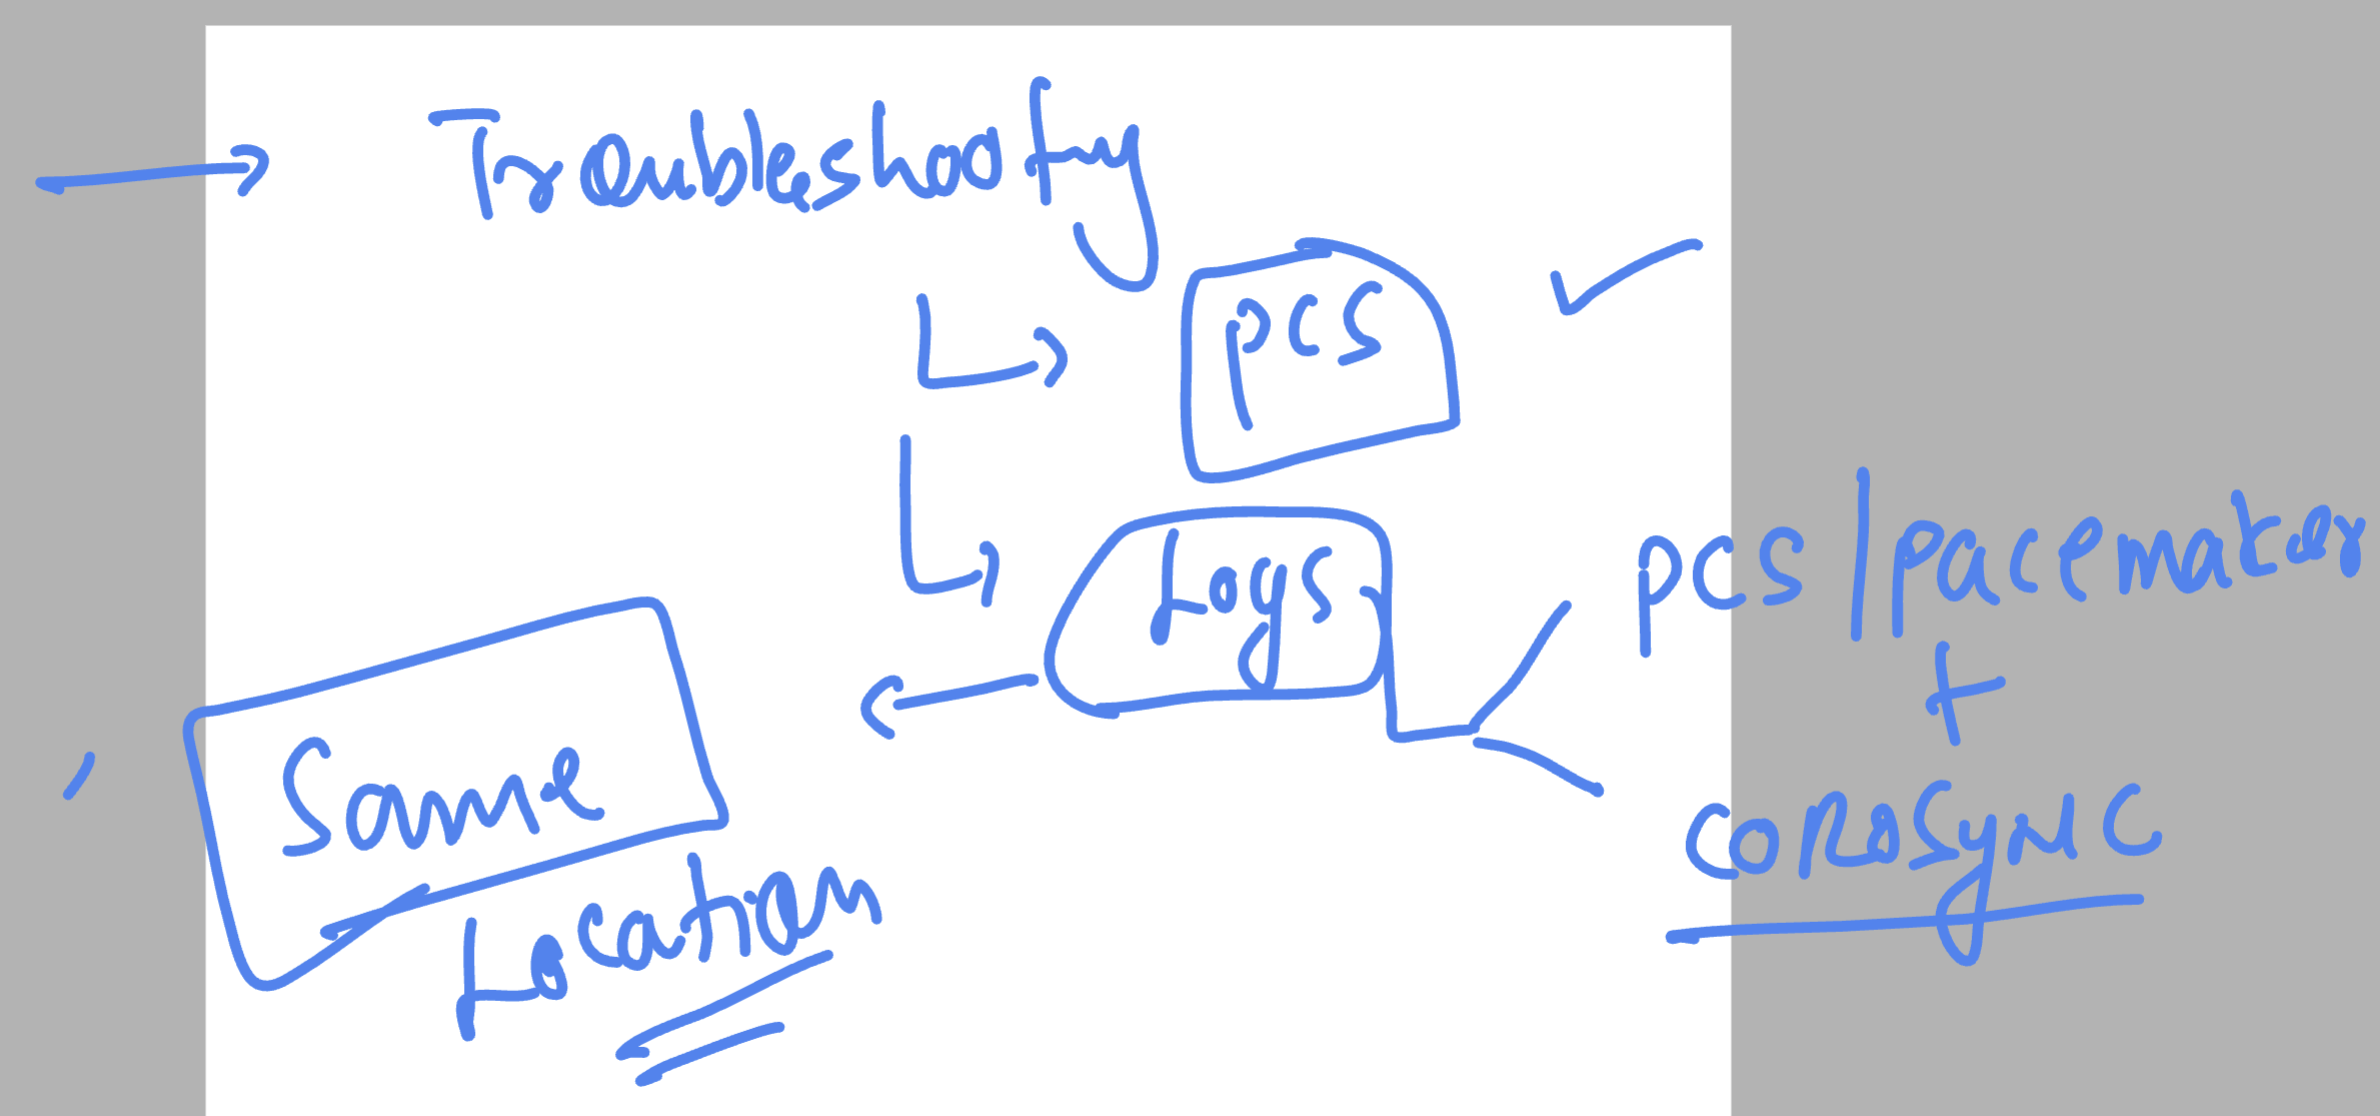 Troubleshooting
pcs
Logs
pcs|pacemaker
+
corosync
Same
Location